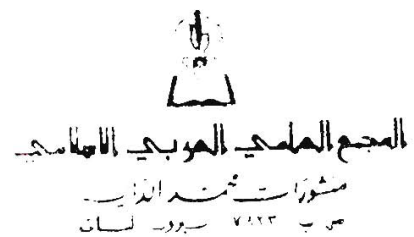 المجمع العلمي العربي الاسلامي
منشورات محمد الداية
ص ب ٧٩٢٣ بيروت لبنان